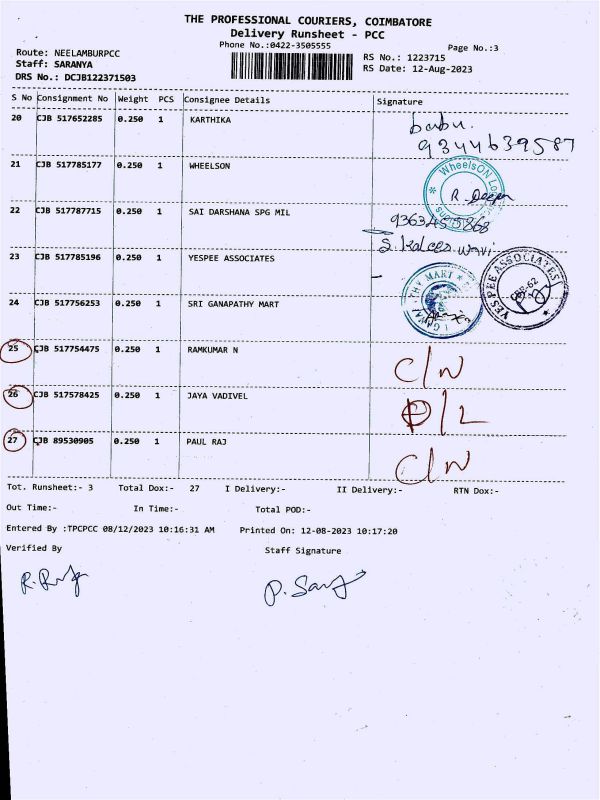 THE PROFESSIONAL COURIERS, COIMBATORE
Delivery Runsheet - PCC
Phone No.:0422-3505555
Page No.:3
Route: NEELAMBURPCC
RS No.: 1223715
Staff: SARANYA
RS Date: 12-Aug-2023
DRS No.: DCJB122371503
S No Consignment No Weight PCS Consignee Details Signature
20 CJB 517652285 0.250 1 KARTHIKA babu.
9344639587
21 CJB 517785177 0.250 1 WHEELSON WheelsON
R. Deepa
22 CJB 517787715 0.250 1 SAI DARSHANA SPG MIL
23 CJB 517785196 0.250 1 YESPEE ASSOCIATES YES PEE ASSOCIATES
CBE-62
24 CJB 517756253 0.250 1 SRI GANAPATHY MART THY MART
25 CJB 517754475 0.250 1 RAMKUMAR N C/N
26 CJB 517578425 0.250 1 JAYA VADIVEL D/L
27 CJB 89530905 0.250 1 PAUL RAJ C/N
Tot. Runsheet:- 3 Total Dox:- 27 I Delivery:- II Delivery:- RTN Dox:-
Out Time:- In Time:- Total POD:-
Entered By :TPCPCC 08/12/2023 10:16:31 AM Printed On: 12-08-2023 10:17:20
Verified By Staff Signature